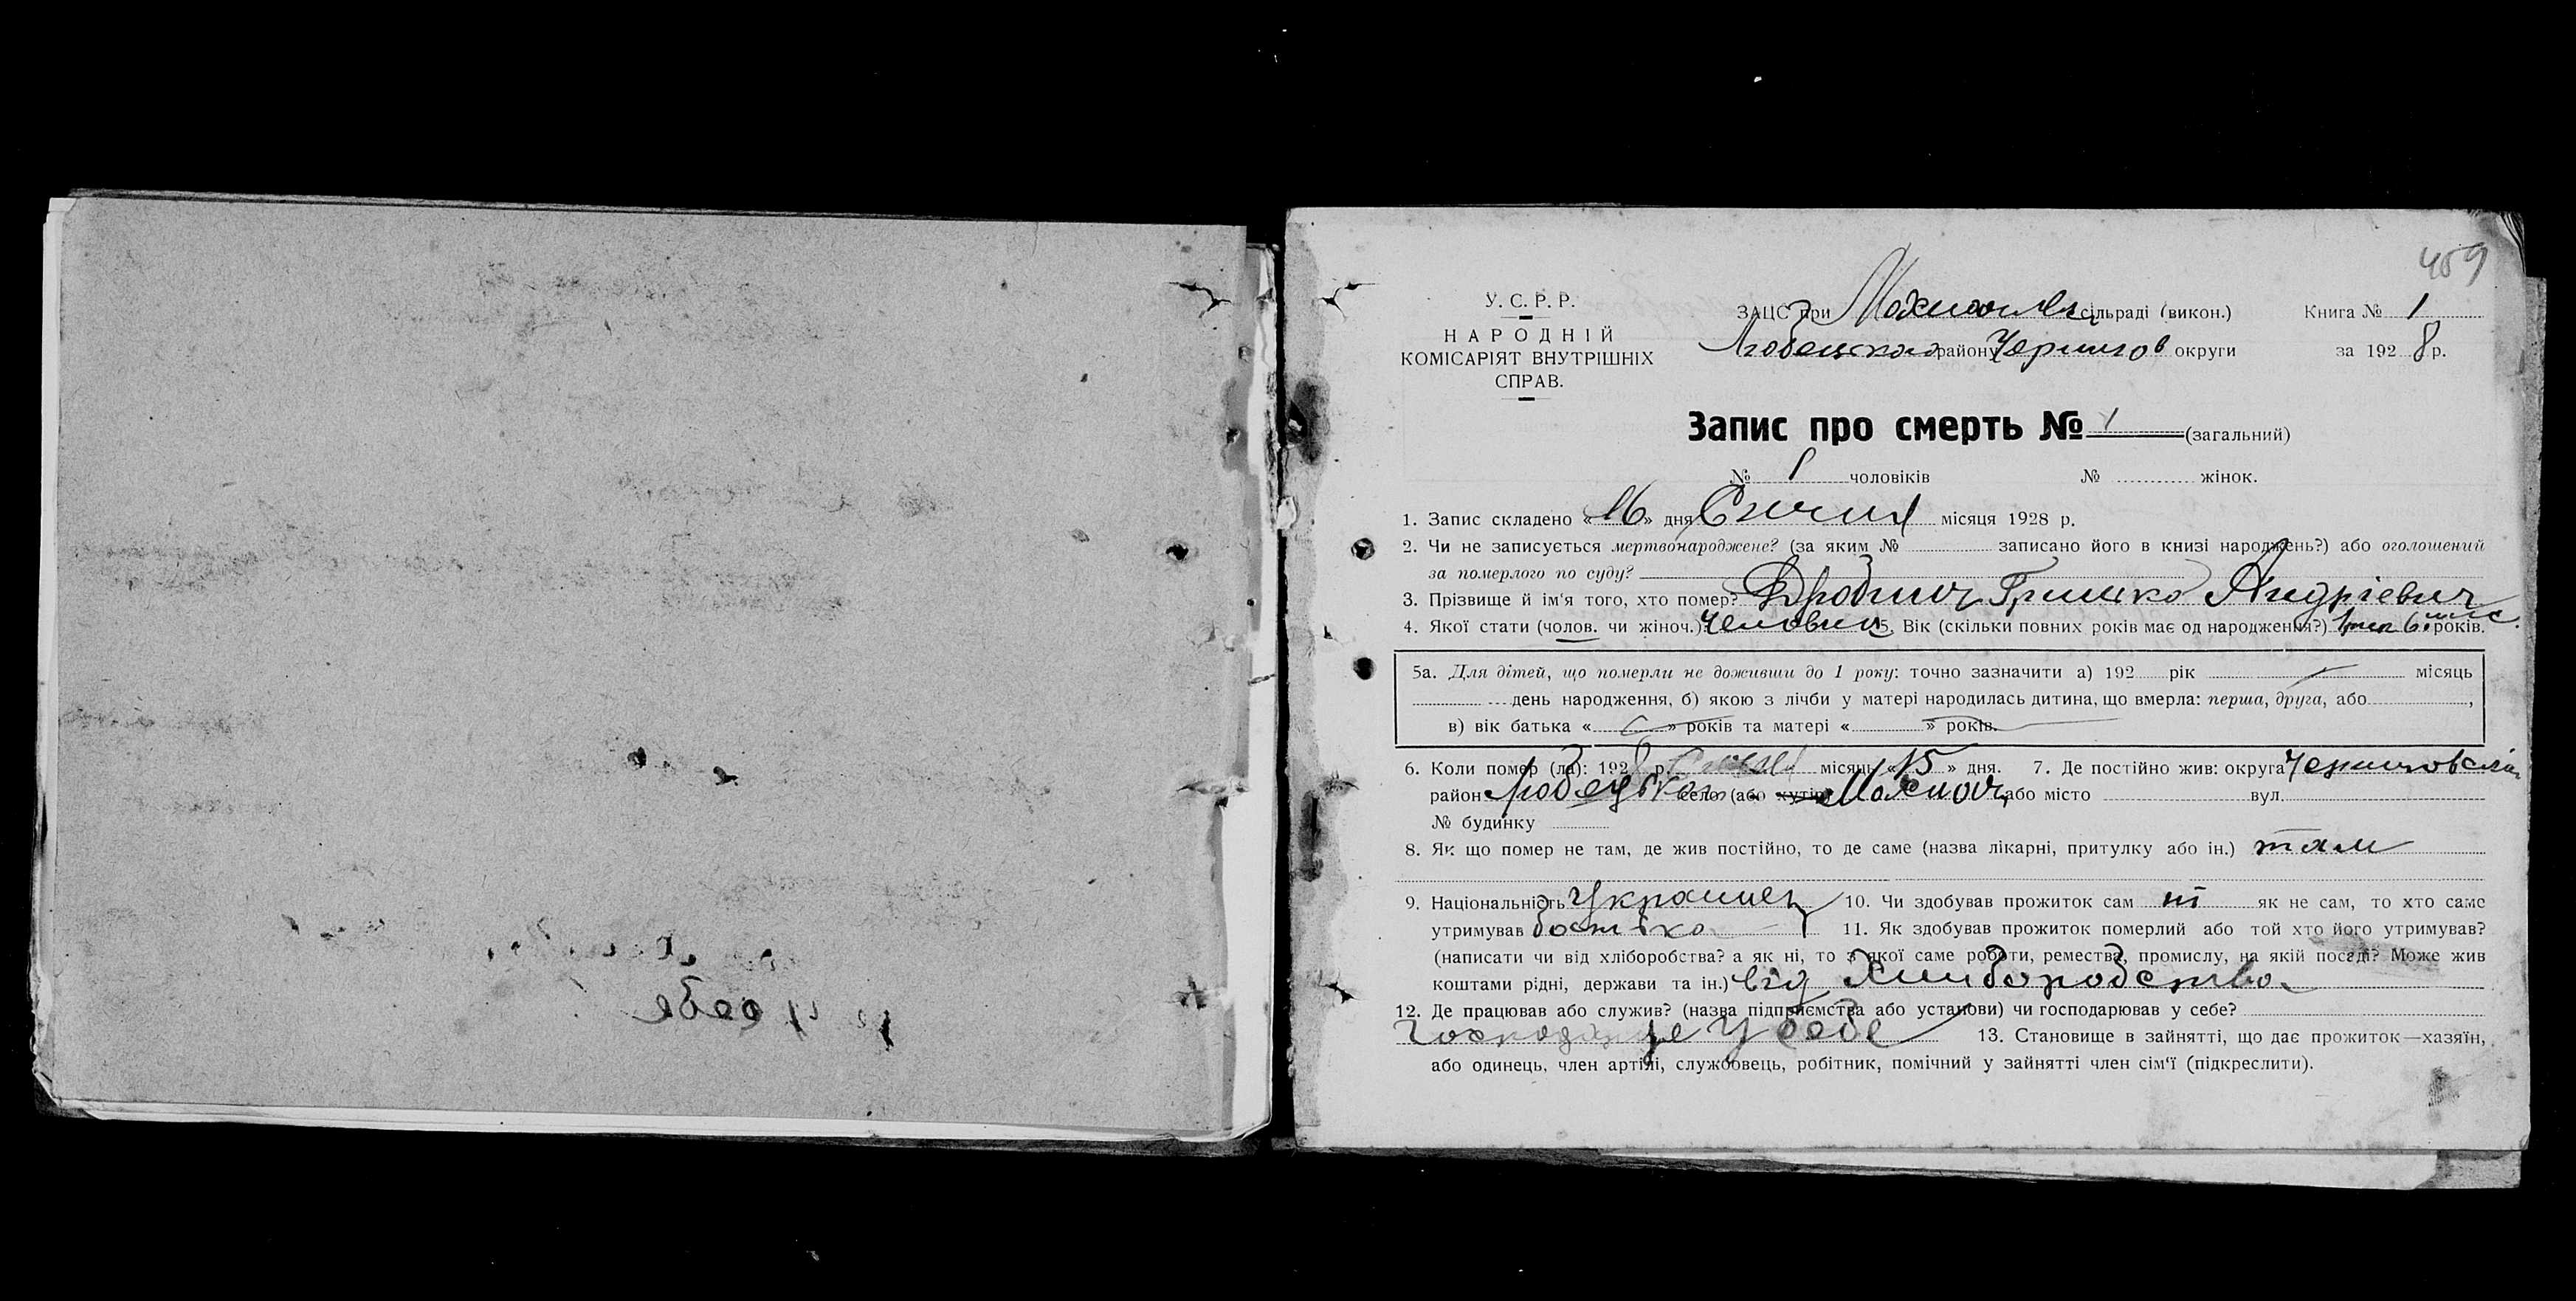 459
У. С. Р. Р.
НАРОДНІЙ
КОМІСАРІЯТ ВНУТРІШНІХ
СПРАВ.
ЗАЦС при сільраді (викон.)
Любецкого району Чернигов округи
Книга № 1
за 1928 р.
Запис про смерть № 1 (загальний)
№ 1 чоловіків № жінок.
1. Запис складено «16» дня Січня місяця 1928 р.
2. Чи не записується мертвонароджене? (за яким № записано його в книзі народжень?) або оголошений
за померлого по суду?
3. Прізвище й ім'я того, хто помер? Дробниц Гришко Андрієвич
4. Якої стати (чолов. чи жіноч.) 5. Вік (скільки повних років має од народження?) 6 міс років.
5а. Для дітей, що померли не доживши до 1 року: точно зазначити а) 192 рік місяць
день народження, б) якою з лічби у матері народилась дитина, що вмерла: перша, друга, або ,
в) вік батька « » років та матері « » років.
6. Коли помер (ла): 1928 р. Січня місяць «15» дня. 7. Де постійно жив: округа
район село (або хутір) Махнач або місто вул.
№ будинку
8. Як що помер не там, де жив постійно, то де саме (назва лікарні, притулку або ін.) там
9. Національність Украинец 10. Чи здобував прожиток сам ні як не сам, то хто саме
утримував батько 11. Як здобував прожиток померлий або той хто його утримував?
(написати чи від хліборобства? а як ні, то з якої саме роботи, ремества, промислу, на якій посаді? Може жив
коштами рідні, держави та ін.) від Хлиборобства
12. Де працював або служив? (назва підприємства або установи) чи господарював у себе?
у себе 13. Становище в зайнятті, що дає прожиток—хазяїн,
або одинець, член артілі, службовець, робітник, помічний у зайнятті член сім'ї (підкреслити).